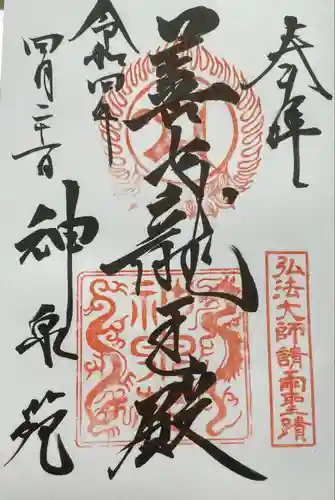 奉拝
弘法大師請雨聖蹟
善女龍王殿
令和四年
四月
神泉苑